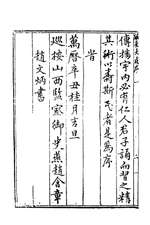 傳播宇內必有仁人君子誦而習之精
其術以壽斯民者是為序
旹
萬曆辛丑桂月吉旦
巡按山西監察御史燕趙含章
趙文炳書